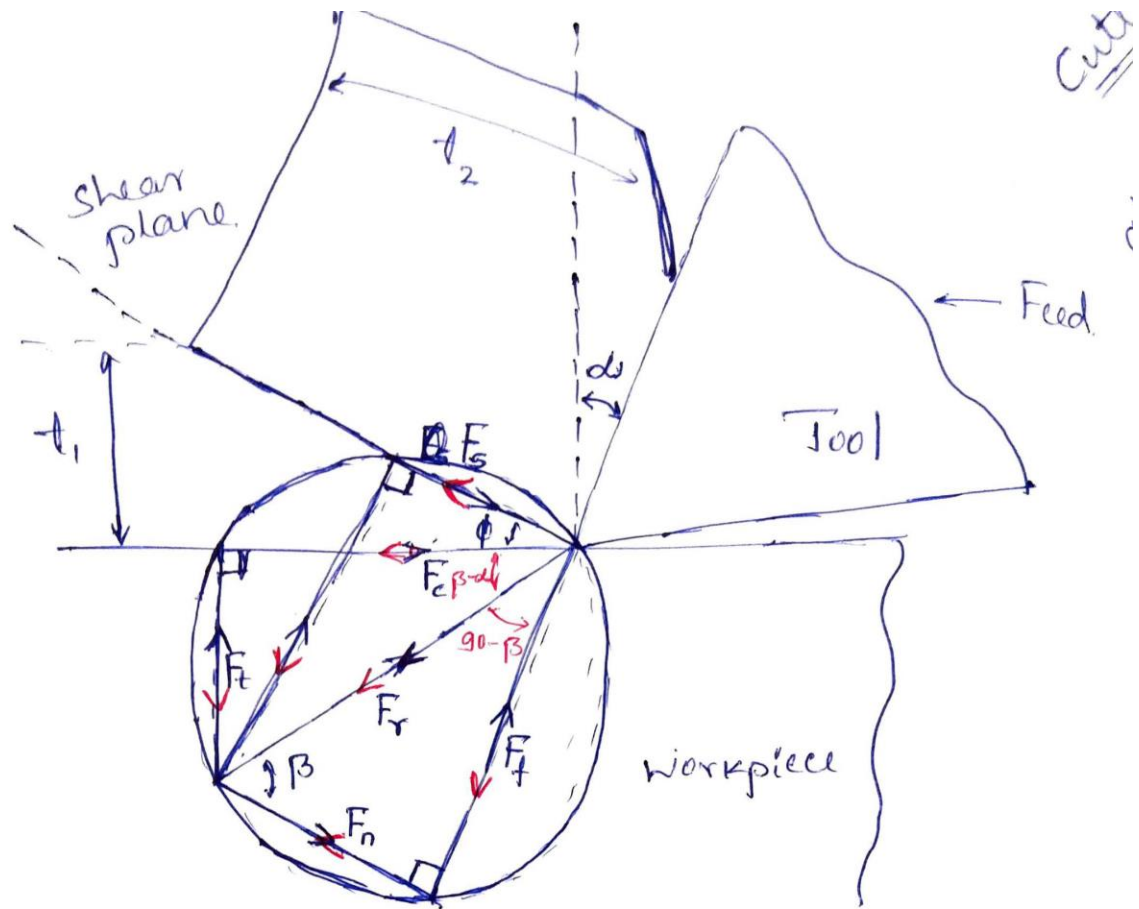 Cutt
t₂
shear
plane.
← Feed.
α
t₁
Tool
Fs
ϕ
Fc
β-α
90-β
Ft
Fr
β
Ff
workpiece
Fn